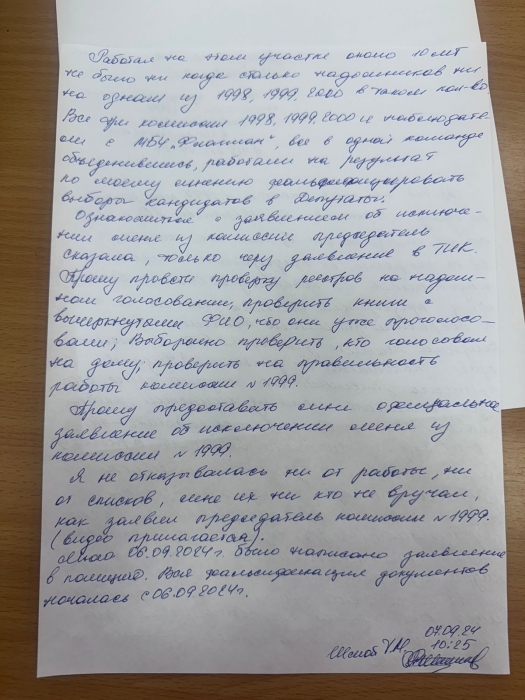 Работал на этом участке около 10 лет
не было ни когда столько надомников ни
на одном из 1998, 1999, 2000 в таком кол-во
Все три комиссии 1998, 1999, 2000 и наблюдате-
ли с МБУ "Флагман", все в одной команде
объеденившись, работали на результат
по моему мнению фальсифицировать
выборы кандидатов в Депутаты.
Ознакомиться с заявлением об исключе-
нии меня из комиссии председатель
сказала, только через заявление в ТИК.
Прошу провести проверку реестров на надом-
ном голосовании; проверить книги с
вычеркнутыми ФИО, что они уже проголосо-
вали; Выборочно проверить, кто голосовал
на дому; проверить на правильность
работы комиссии № 1999.
Прошу предоставать мне официальное
заявление об исключении меня из
комиссии № 1999.
Я не отказывалась ни от работы, ни
от списков, мне их ни кто не вручал,
как заявил председатель комиссии № 1999.
(видео прилагается).
06.09.2024г. было написано заявление
в полицию. Вся фальсификация документов
началась с 06.09.2024г.
07.09.24
10:25